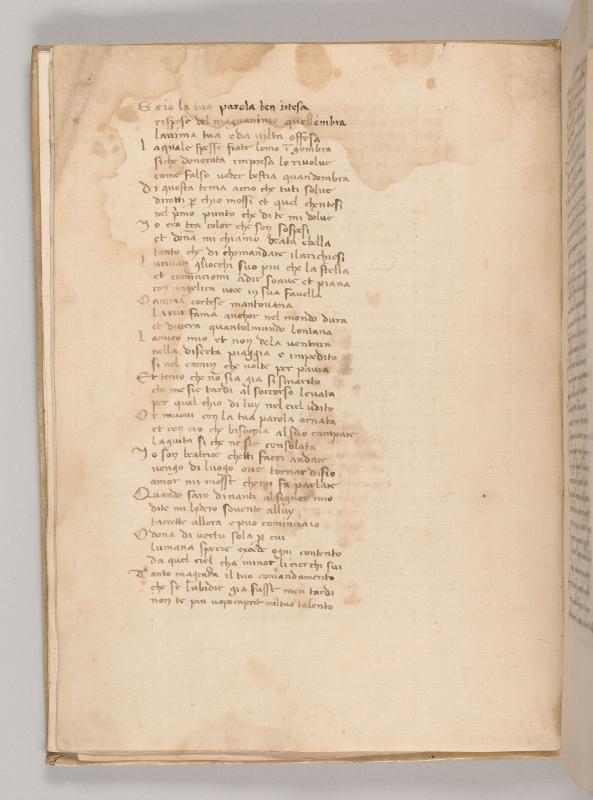 S eio la tua parola ben ītesa
rispose del magnanimo quellombra
lanima tua e da vilta offesa
L aquale spesse fiate lomo īgombra
siche donorata impresa lo rivolve
come falso veder bestia quandombra
D i questa tema accio che tuti solve
dirotti ꝑ chio mossi et quel chentesi
nel pͥmo punto che di te mi dolve
I o era tra color che son sospesi
et dona mi chiamo beata ebella
tanto che di chomandare ilarichiesi
L ucivan gliocchi suo piu che la stella
et cominciomi adir soave et piana
con angelica voce in sua favella
O anima cortese mantovana
la cui fama anchor nel mondo dura
et durera quantolmundo lontana
L amico mio et non dela ventura
nella diserta piaggia e impedito
si nel camin che volte per paura
Et temo che nō sia gia si smarito
che me sie tardi al soccorso levata
per quel chio di luy nel ciel udito
O r muovi con la tua parola ornata
et con cio che bisogna al suo campare
laiuta si che ne sie consolata
I o son beatrice chetti facci andare
vengo di luogo ove tornar disio
amor mi mosse chemi fa parlare
Quando saro dinanti alsignor mio
dite mi lodero sovente alluy
tacette allora e puo cominciaio
O dona di vertu sola ꝑ cui
lumana specie excede ogni contento
da quel ciel cha minor li cierchi sui
Tanto magrada il tuo comandamento
che se lubidir gia fusse men tardi
non te piu uopo talento